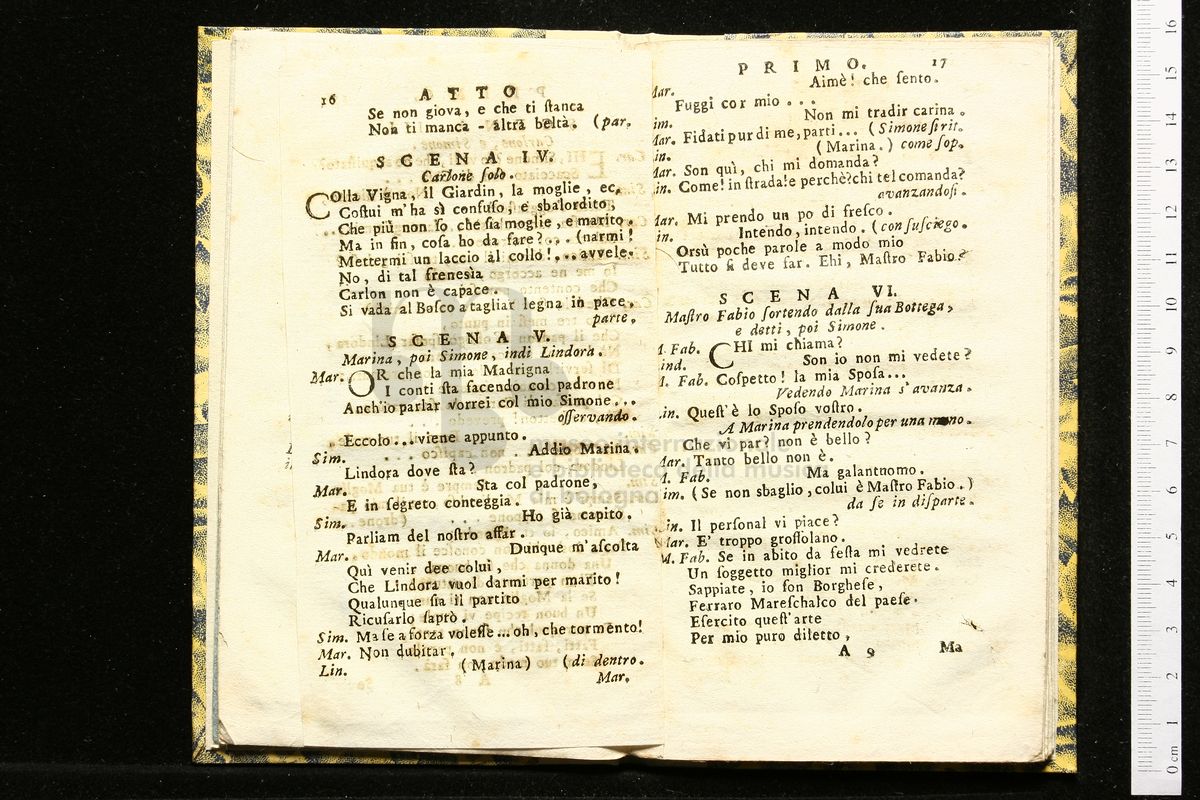 16 ATTO
Se non giova, e che ti ſtanca
Non ti manca - altra beltà. (par.
SCENA IV.
Carlone ſolo.
COlla Vigna, il Giardin, la moglie, ec,
Coſtui m'ha sì confuſo, e sbalordito,
Che più non ſo che ſia moglie, e marito.
Ma in fin, coſa ho da fare?... (narmi!
Mettermi un laccio al collo!... avvele-
No, di tal frenesìa
Carlon non è capace.
Si vada al Boſco a tagliar legna in pace.
parte.
SCENA V.
Marina, poi Simone, indi Lindora.
Mar. OR che la mia Madrigna
I conti ſta facendo col padrone
Anch'io parlar vorrei col mio Simone...
oſſervando.
Eccolo... viene appunto.
Sim. Addio Marina.
Lindora dove ſta?
Mar. Sta col padrone,
E in ſegreto conteggia.
Sim. Ho già capito.
Parliam del noſtro affar.
Mar. Dunque m'aſcolta
Quì venir dee colui,
Che Lindora vuol darmi per marito!
Qualunque ſia il partito
Ricuſarlo ſaprò.
Sim. Ma ſe a forza voleſſe... oh, che tormento!
Mar. Non dubitar.
Lin. (Marina) (di dentro.
Mar.
PRIMO. 17
Mar. Aimè! che ſento.
Fuggi cor mio...
im. Non mi tradir carina.
Mar. Fidati pur di me, parti... (Simone ſi rit.
in. (Marina.) come ſop.
Mar. Son quì, chi mi domanda?
in. Come! in ſtrada! e perchè? chi tel comanda?
avanzandoſi.
Mar. Mi prendo un po di freſco.
in. Intendo, intendo. (con ſuſciego.
Orsù poche parole a modo mio
Tutto ſi deve far. Ehi, Maſtro Fabio?
SCENA VI.
Maſtro Fabio ſortendo dalla ſua Bottega,
e detti, poi Simone.
M. Fab. CHI mi chiama?
ind. Son io non mi vedete?
M. Fab. Coſpetto! la mia Spoſa...
Vedendo Marina s'avanza.
in. Queſt'è lo Spoſo voſtro.
A Marina prendendolo per una mano.
Che vi par? non è bello?
Mar. Tanto bello non è.
M. Fab. Ma galantuomo.
im. (Se non sbaglio, colui è Maſtro Fabio.)
da ſe in diſparte.
in. Il perſonal vi piace?
Mar. E' troppo groſſolano.
M. Fab. Se in abito da feſta mi vedrete
Un ſoggetto miglior mi crederete.
Sappiate, io ſon Borgheſe,
Ferraro Mareſchalco del paeſe.
Eſercito queſt'arte
Per mio puro diletto,
A 9 Ma
museo internazionale
e biblioteca della musica
di bologna
0 cm 1 2 3 4 5 6 7 8 9 10 11 12 13 14 15 16